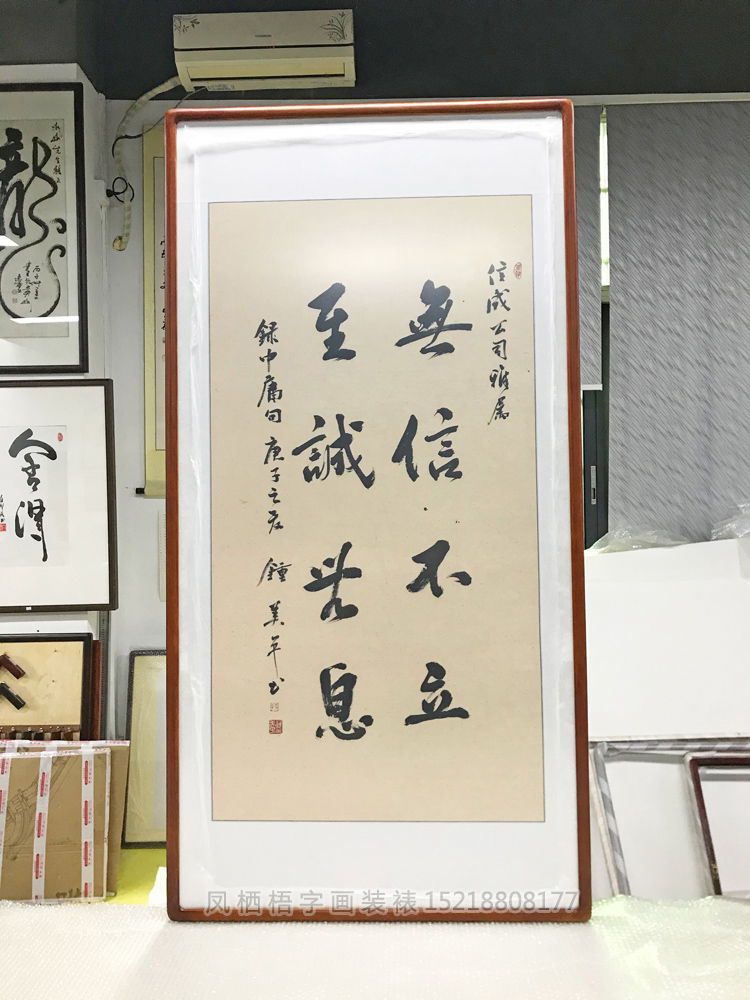 信成公司雅属
無信不立
至誠無息
録中庸句 庚子之夜 鍾美平书
龍
舍得
凤栖梧字画装裱15218808177